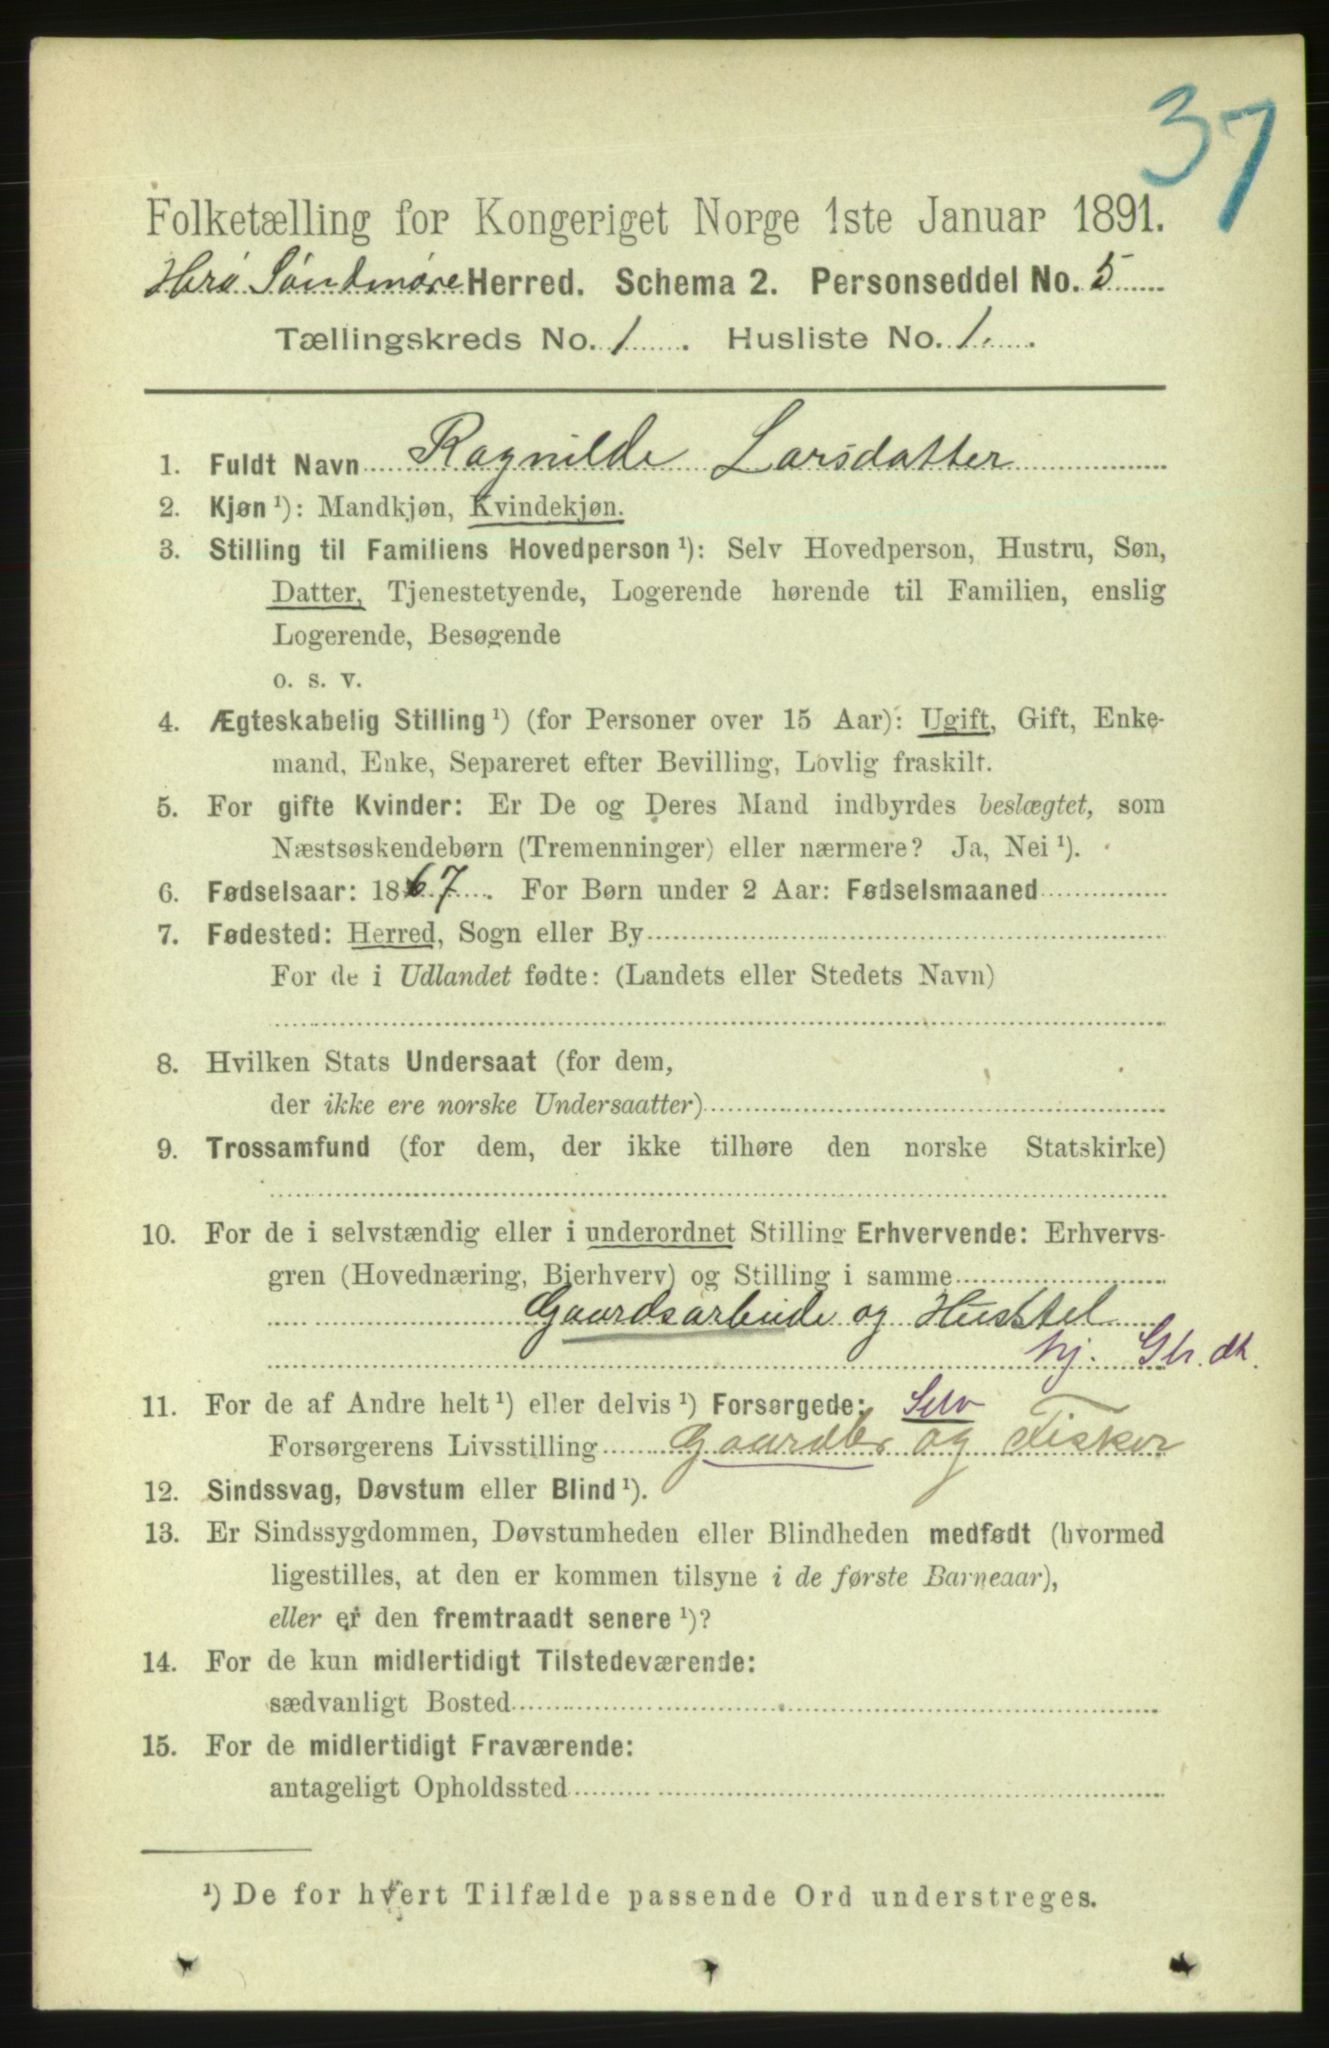 37
Folketælling for Kongeriget Norge 1ste Januar 1891.
Herö Söndmöre Herred. Schema 2. Personseddel No. 5
Tællingskreds No. 1. Husliste No. 1.
1. Fuldt Navn Ragnilde Larsdatter
2. Kjøn ¹): Mandkjøn, Kvindekjøn.
3. Stilling til Familiens Hovedperson ¹): Selv Hovedperson, Hustru, Søn,
Datter, Tjenestetyende, Logerende hørende til Familien, enslig
Logerende, Besøgende
o. s. v.
4. Ægteskabelig Stilling ¹) (for Personer over 15 Aar): Ugift, Gift, Enke-
mand, Enke, Separeret efter Bevilling, Lovlig fraskilt.
5. For gifte Kvinder: Er De og Deres Mand indbyrdes beslægtet, som
Næstsøskendebørn (Tremenninger) eller nærmere? Ja, Nei ¹).
6. Fødselsaar: 1867. For Børn under 2 Aar: Fødselsmaaned
7. Fødested: Herred, Sogn eller By
For de i Udlandet fødte: (Landets eller Stedets Navn)
8. Hvilken Stats Undersaat (for dem,
der ikke ere norske Undersaatter)
9. Trossamfund (for dem, der ikke tilhøre den norske Statskirke)
10. For de i selvstændig eller i underordnet Stilling Erhvervende: Erhvervs-
gren (Hovednæring, Bierhverv) og Stilling i samme
Gaardsarbeide og Husstel
hj. Gb. dt.
11. For de af Andre helt ¹) eller delvis ¹) Forsørgede: Selv
Forsørgerens Livsstilling Gaardbr og Fisker
12. Sindssvag, Døvstum eller Blind ¹).
13. Er Sindssygdommen, Døvstumheden eller Blindheden medfødt (hvormed
ligestilles, at den er kommen tilsyne i de første Barneaar),
eller er den fremtraadt senere ¹)?
14. For de kun midlertidigt Tilstedeværende:
sædvanligt Bosted
15. For de midlertidigt Fraværende:
antageligt Opholdssted
¹) De for hvert Tilfælde passende Ord understreges.